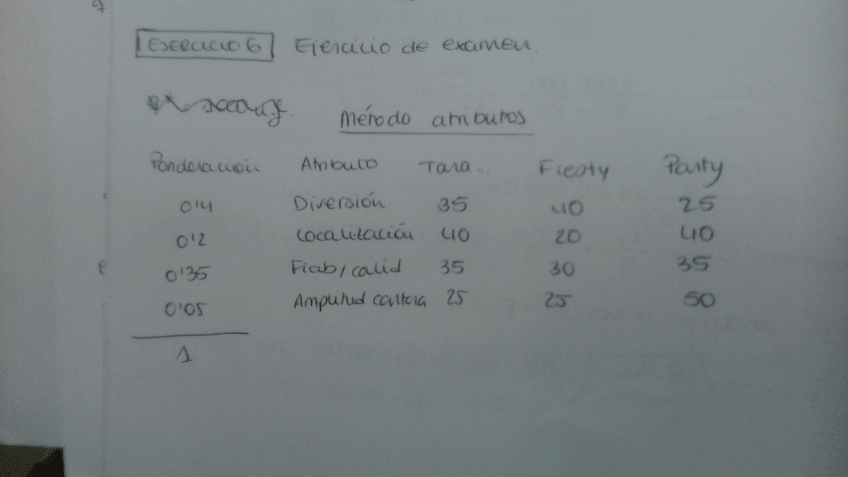 EJERCICIO 6 Ejercicio de examen
Método atributos
Ponderación Atributo Tara.. Fiesty Party
0'4 Diversión 35 40 25
0'2 Localización 40 20 40
0'35 Fiab/calid 35 30 35
0'05 Amplitud cartera 25 25 50
1